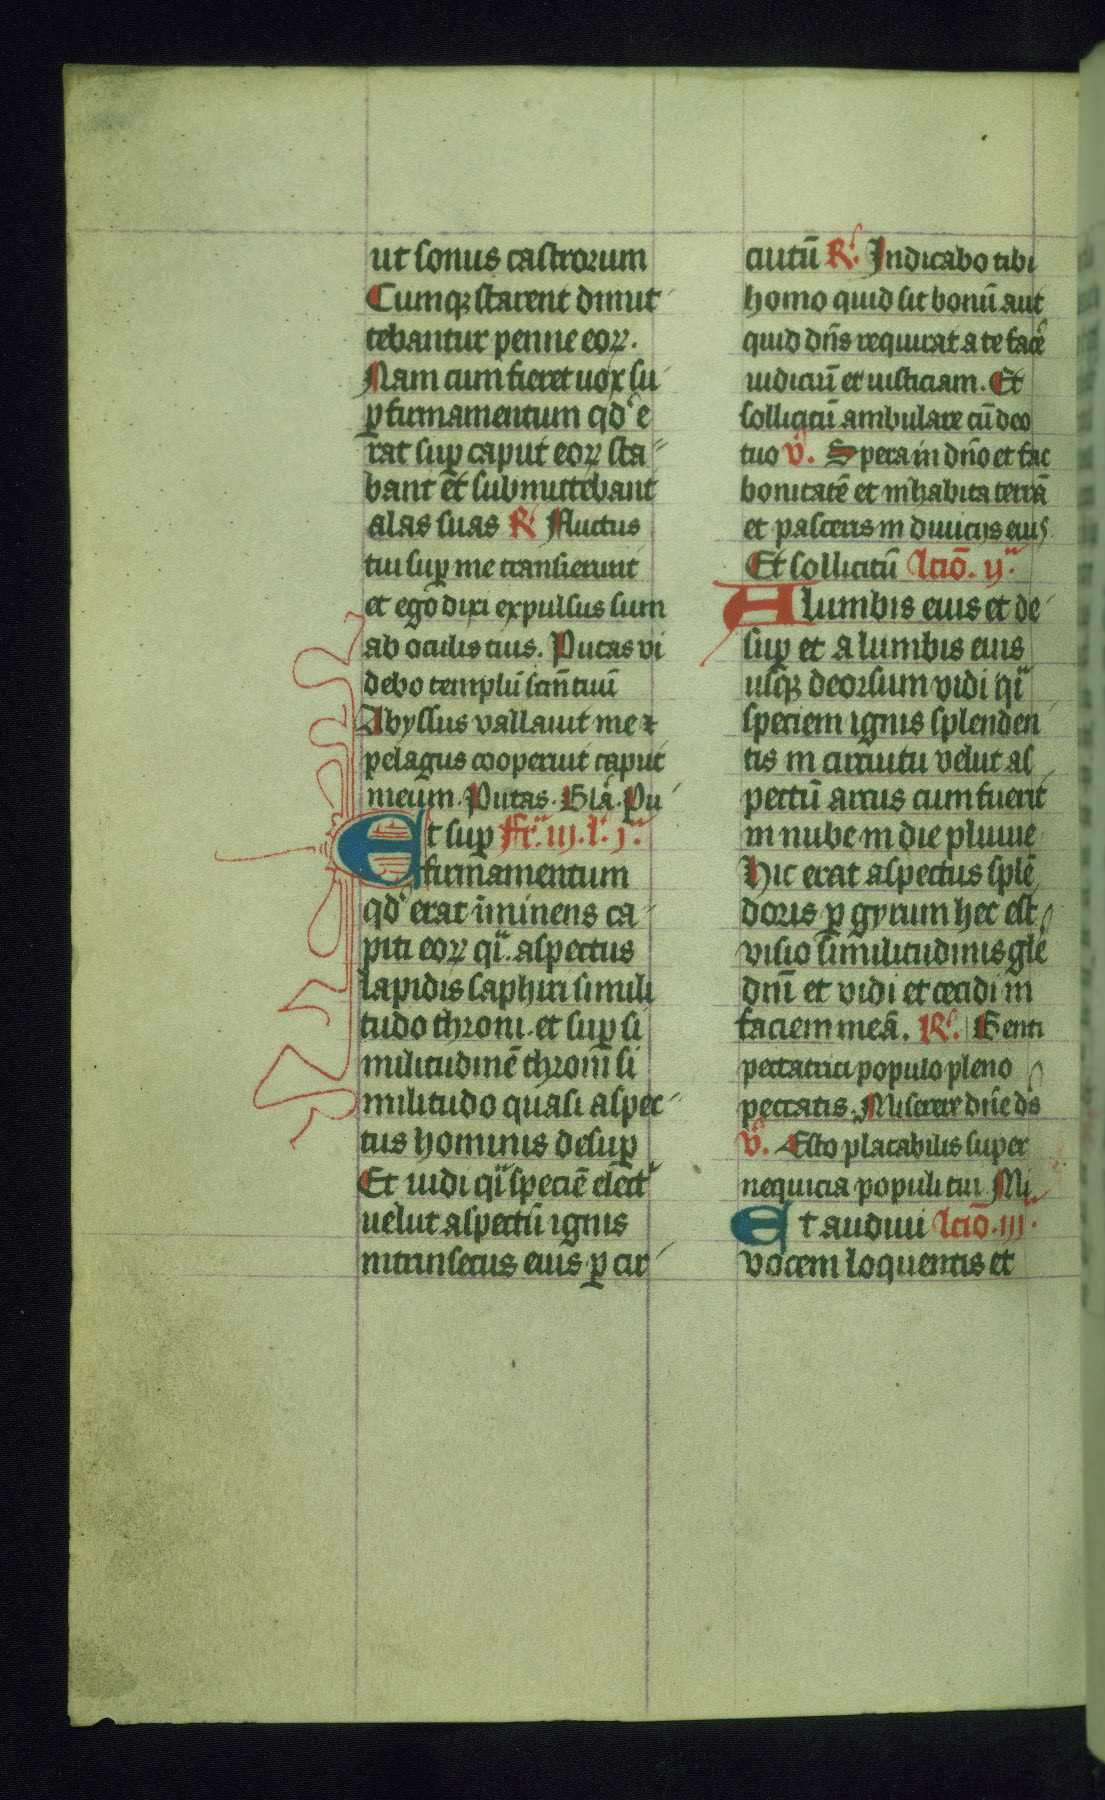 ut sonus castrorum
Cumq; starent dimit
tebantur penne eoꝝ.
Nam cum fieret uox su
ꝑ firmamentum qd' e
rat suꝑ caput eoꝝ sta
bant et submittebant
alas suas R' Fluctus
tui suꝑ me transierunt
et ego dixi expulsus sum
ab oculis tuis. Putas vi
debo templū scm̄ tuū
Abyssus vallauit me ⁊
pelagus cooperuit caput
meum. Putas. Gla. Pu
Et suꝑ Fr'. iij. l'. j'.
firmamentum
qd' erat īminens ca
piti eoꝝ qi. aspectus
lapidis saphiri simili
tudo throni. et suꝑ si
militudinē throni si
militudo quasi aspec
tus hominis desuꝑ
Et uidi qi speciē elect'
uelut aspectū ignis
intrinsecus eius. ꝑ cir
cuitū R'. Indicabo tibi
homo quid sit bonū aut
quid dn̄s requirat a te face'
iudiciū et iusticiam. Et
sollicitū ambulare cū deo
tuo v'. Spera in dn̄o et fac
bonitatē et inhabita terrā
et pasceris in diuicijs eius
Et sollicitū lctio. ij'.
A lumbis eius et de
suꝑ et a lumbis eius
usq; deorsum vidi qi
speciem ignis splenden
tis in circuitu velut as
pectū arcus cum fuerit
in nube in die pluuie
Hic erat aspectus splē
doris ꝑ gyrum hec est
visio similitudinis glē
dn̄i et vidi et cecidi in
faciem meā. R'. Genti
peccatrici populo pleno
peccatis. Miserere dn̄e ds
v'. Esto placabilis super
nequicia populi tui Mi
Et audiui lctio. iij'.
vocem loquentis et